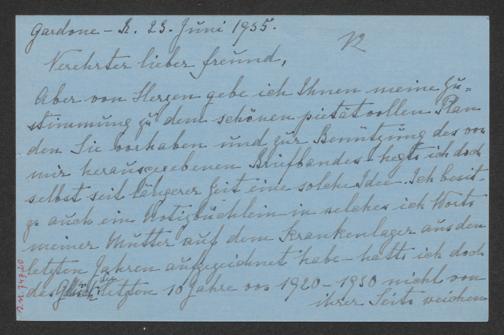 Gardone - R. 23. Juni 1935.
Verehrter lieber Freund,
Aber von Herzen gebe ich Ihnen meine Zu=
stimmung zu dem schönen pietätvollen Plan
den Sie vorhaben und zur Benützung des von
mir herausgegebenen Briefbandes - hegte ich doch
selbst seit längerer Zeit eine solche Idee. Ich besit-
ze auch ein Notizbüchlein in welches ich Worte
meiner Mutter auf dem Krankenlager aus den
letzten Jahren aufgezeichnet habe - hatte ich doch
das Glück letzten 10 Jahre von 1920 - 1930 nicht von
ihrer Seite weichen